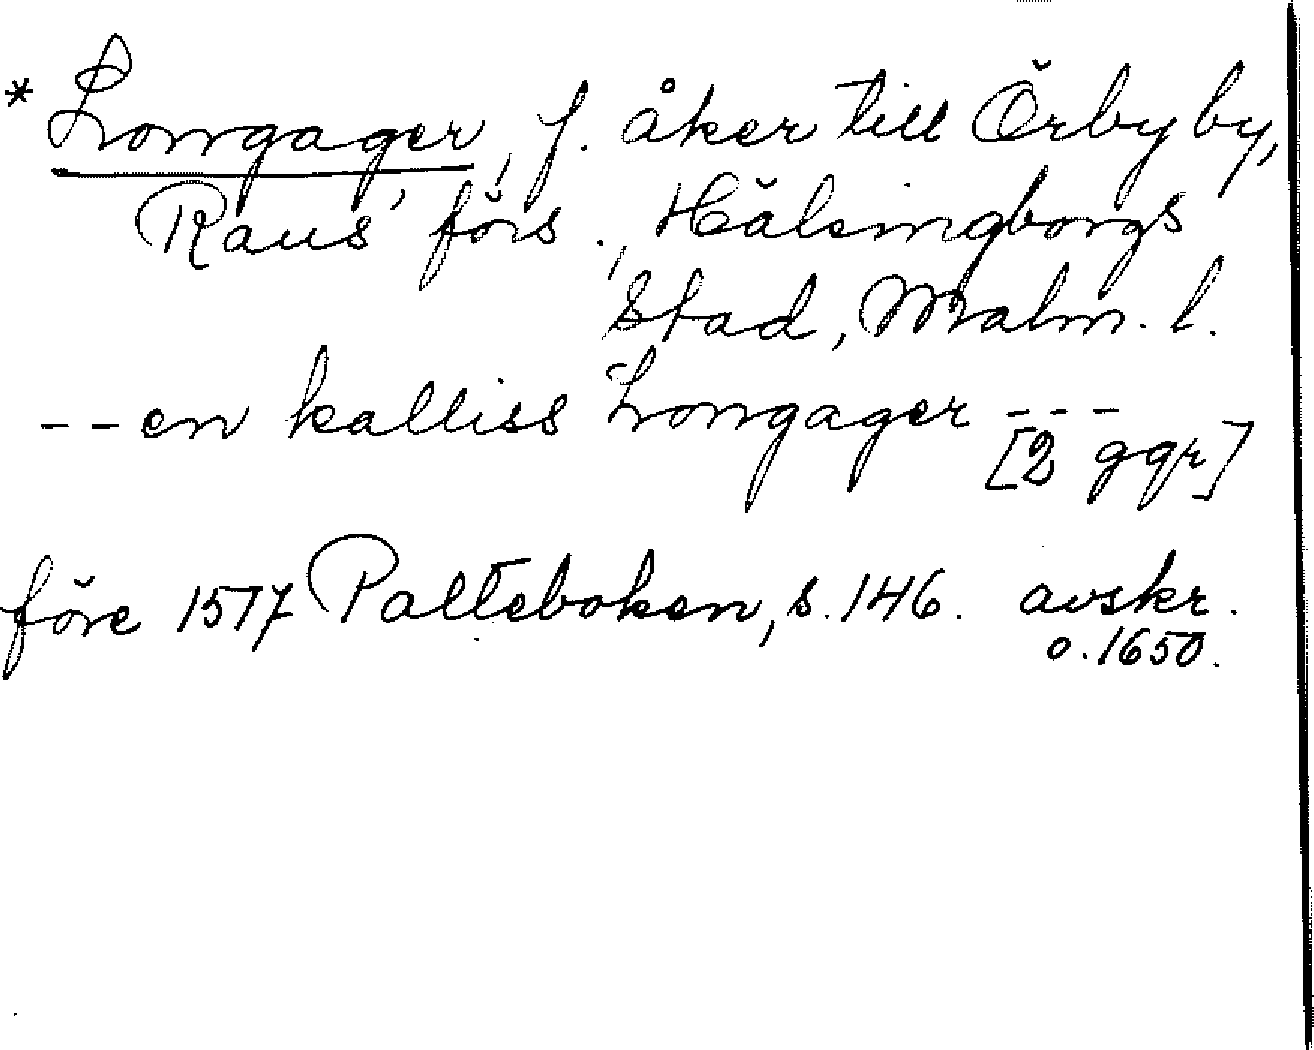 * Longager, f. åker till Örby by,
Raus' förs., Hälsingborgs
stad, Malm. l.
-- en kalliss Longager ---
[2 ggr]
före 1517 Palteboken, s. 146. avskr.
o. 1650.